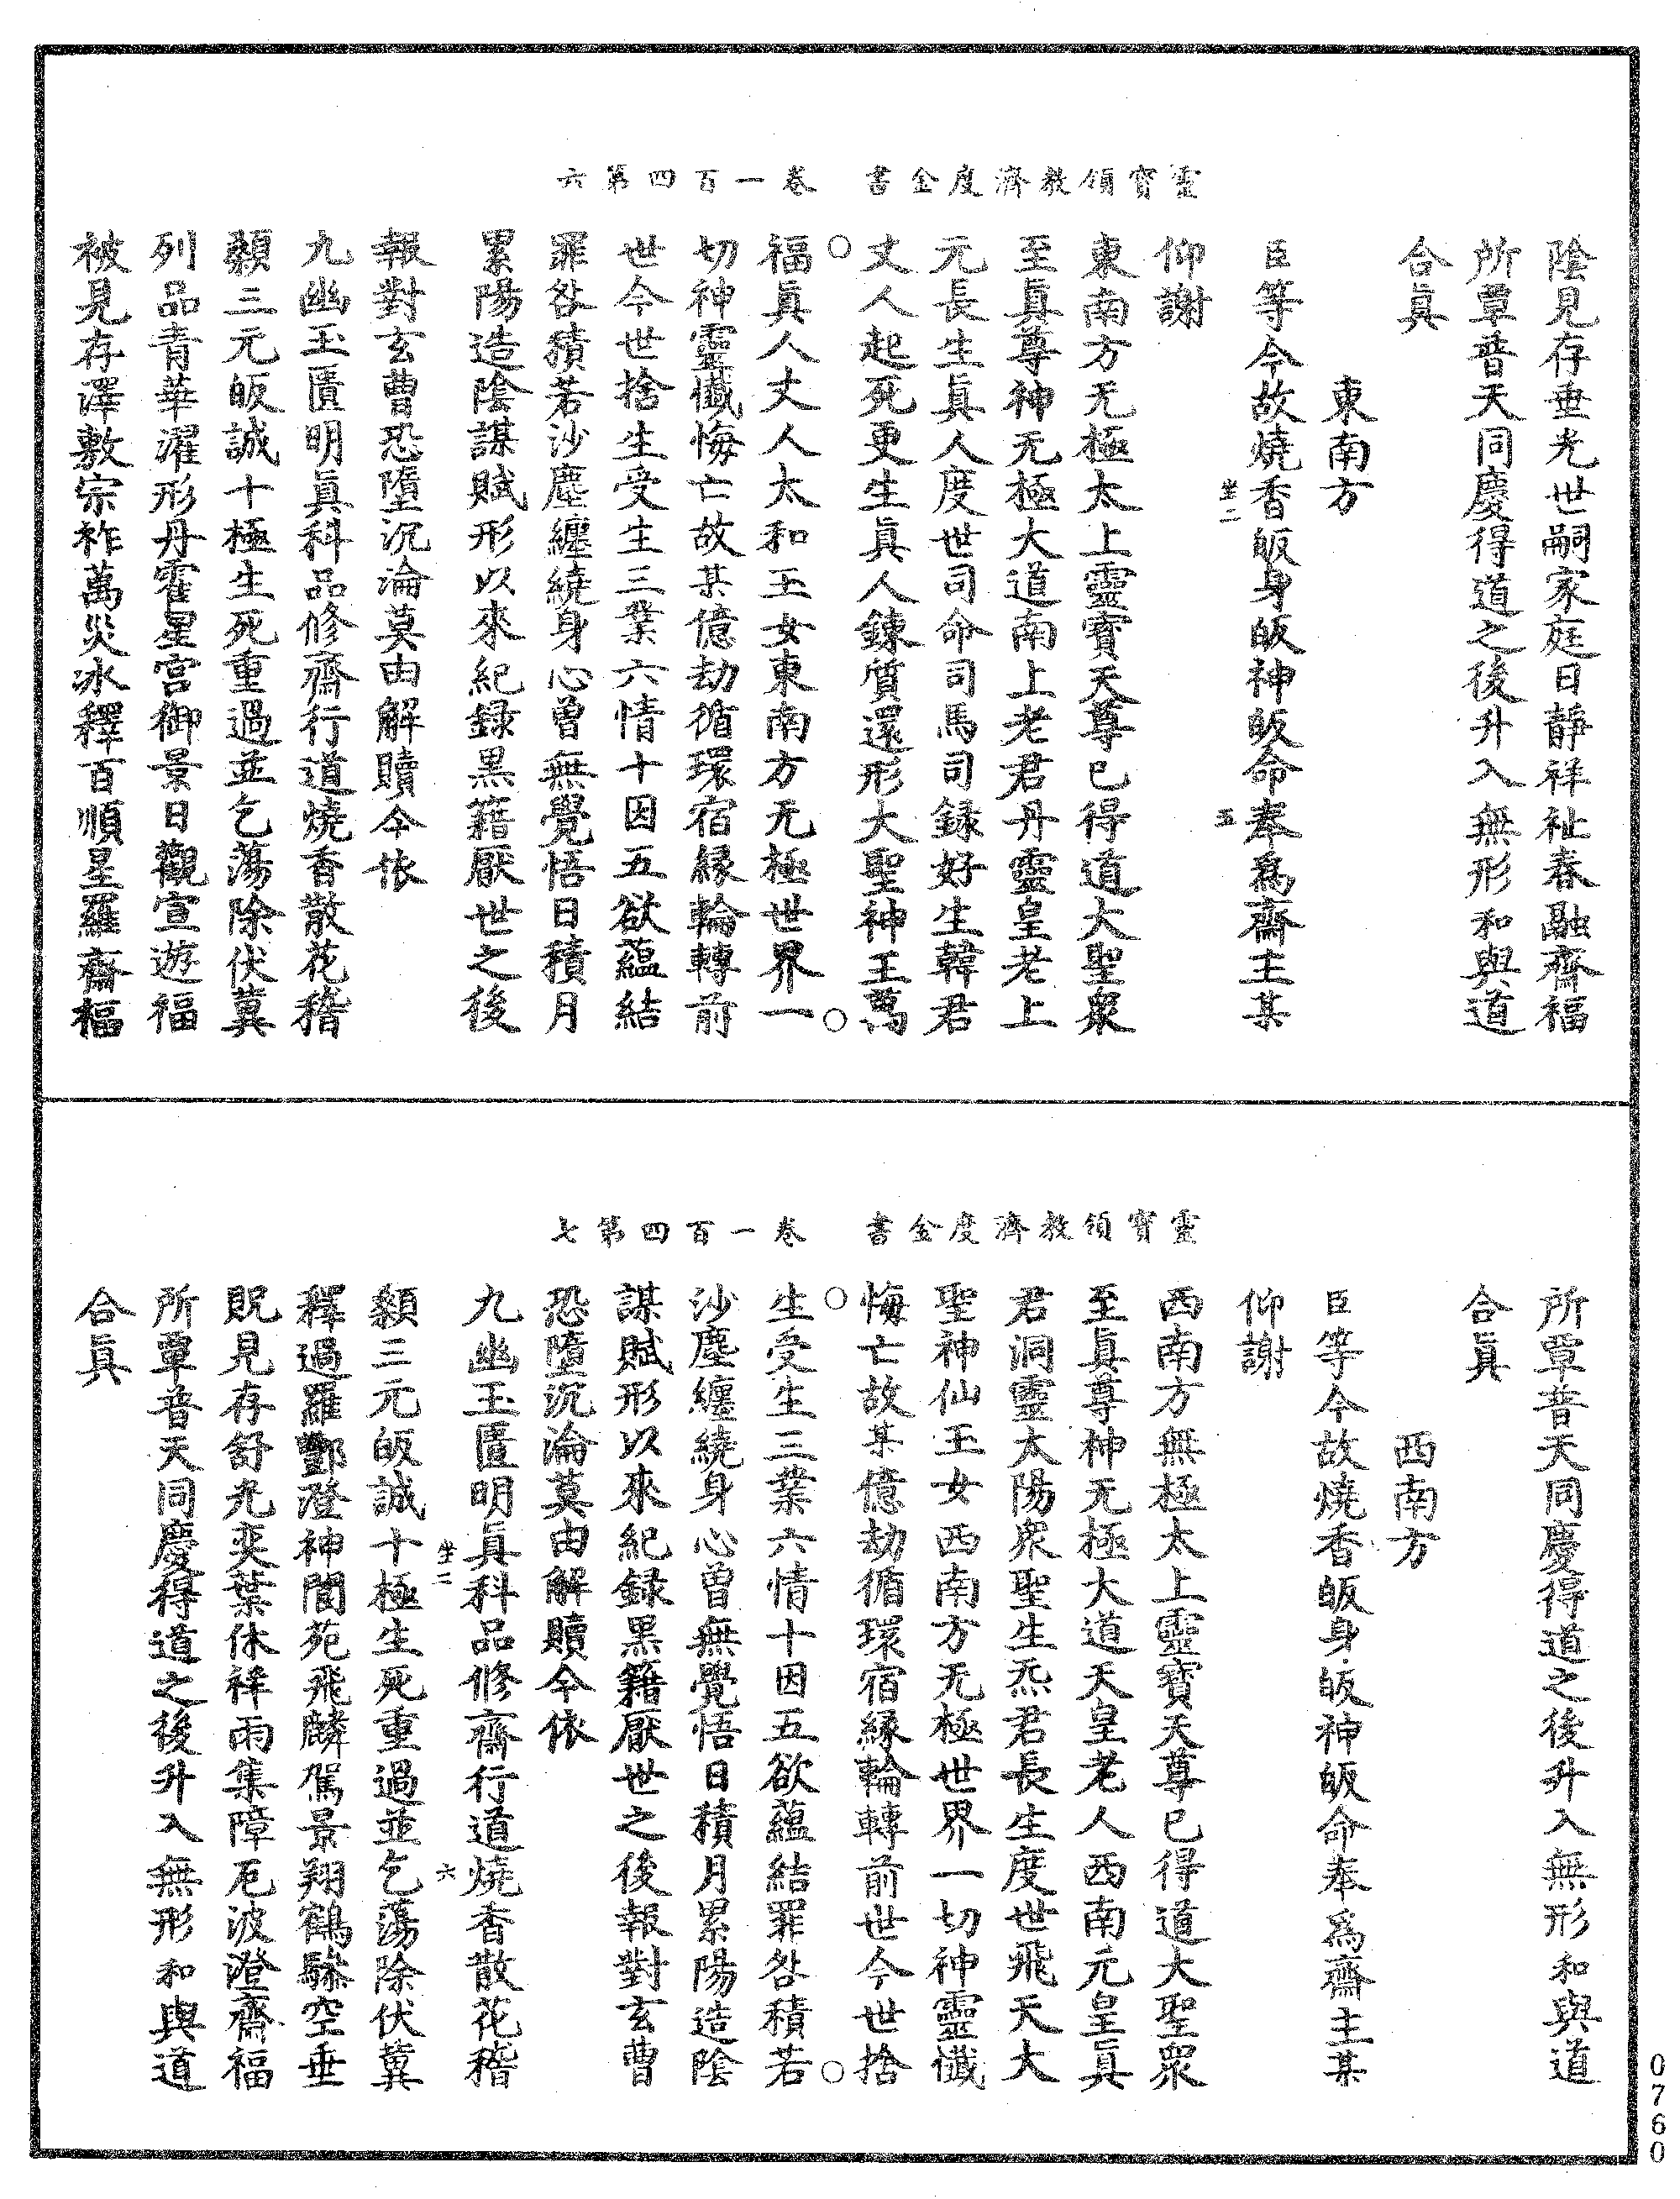 靈寶領教濟度金書　卷一百四第六
陰見存垂光世嗣家庭日靜祥祉春融齋福
所覃普天同慶得道之後升入無形和與道
合眞
東南方
臣等今故燒香皈身皈神皈命奉爲齋主某
坐二　五
仰謝
東南方无極太上靈寶天尊已得道大聖衆
至眞尊神无極大道南上老君丹靈皇老上
元長生眞人度世司命司馬司録好生韓君
丈人起死更生眞人鍊質還形大聖神王萬
福眞人丈人太和玉女東南方无極世界一
切神靈懺悔亡故某億劫循環宿緣輪轉前
世今世捨生受生三業六情十因五欲蘊結
罪咎積若沙塵纏繞身心曾無覺悟日積月
累陽造陰謀賦形以來紀録黑籍厭世之後
報對玄曹恐墮沉淪莫由解贖今依
九幽玉匱明眞科品修齋行道燒香散花稽
顙三元皈誠十極生死重過並乞蕩除伏冀
列品青華濯形丹霍星宮御景日觀宣遊福
被見存澤敷宗祚萬災冰釋百順星羅齋福
靈寶領教濟度金書　卷一百四第七
所覃普天同慶得道之後升入無形和與道
合眞
西南方
臣等今故燒香皈身皈神皈命奉爲齋主某
仰謝
西南方無極太上靈寶天尊已得道大聖衆
至眞尊神无極大道天皇老人西南元皇眞
君洞靈太陽衆聖生炁君長生度世飛天大
聖神仙玉女西南方无極世界一切神靈懺
悔亡故某億劫循環宿緣輪轉前世今世捨
生受生三業六情十因五欲蘊結罪咎積若
沙塵纏繞身心曾無覺悟日積月累陽造陰
謀賦形以來紀録黑籍厭世之後報對玄曹
恐墮沉淪莫由解贖今依
九幽玉匱明眞科品修齋行道燒香散花稽
坐二　六
顙三元皈誠十極生死重過並乞蕩除伏冀
釋過羅酆澄神閬苑飛麟駕景翔鶴驂空垂
貺見存舒光奕葉休祥雨集障厄波澄齋福
所覃普天同慶得道之後升入無形和與道
合眞
0760